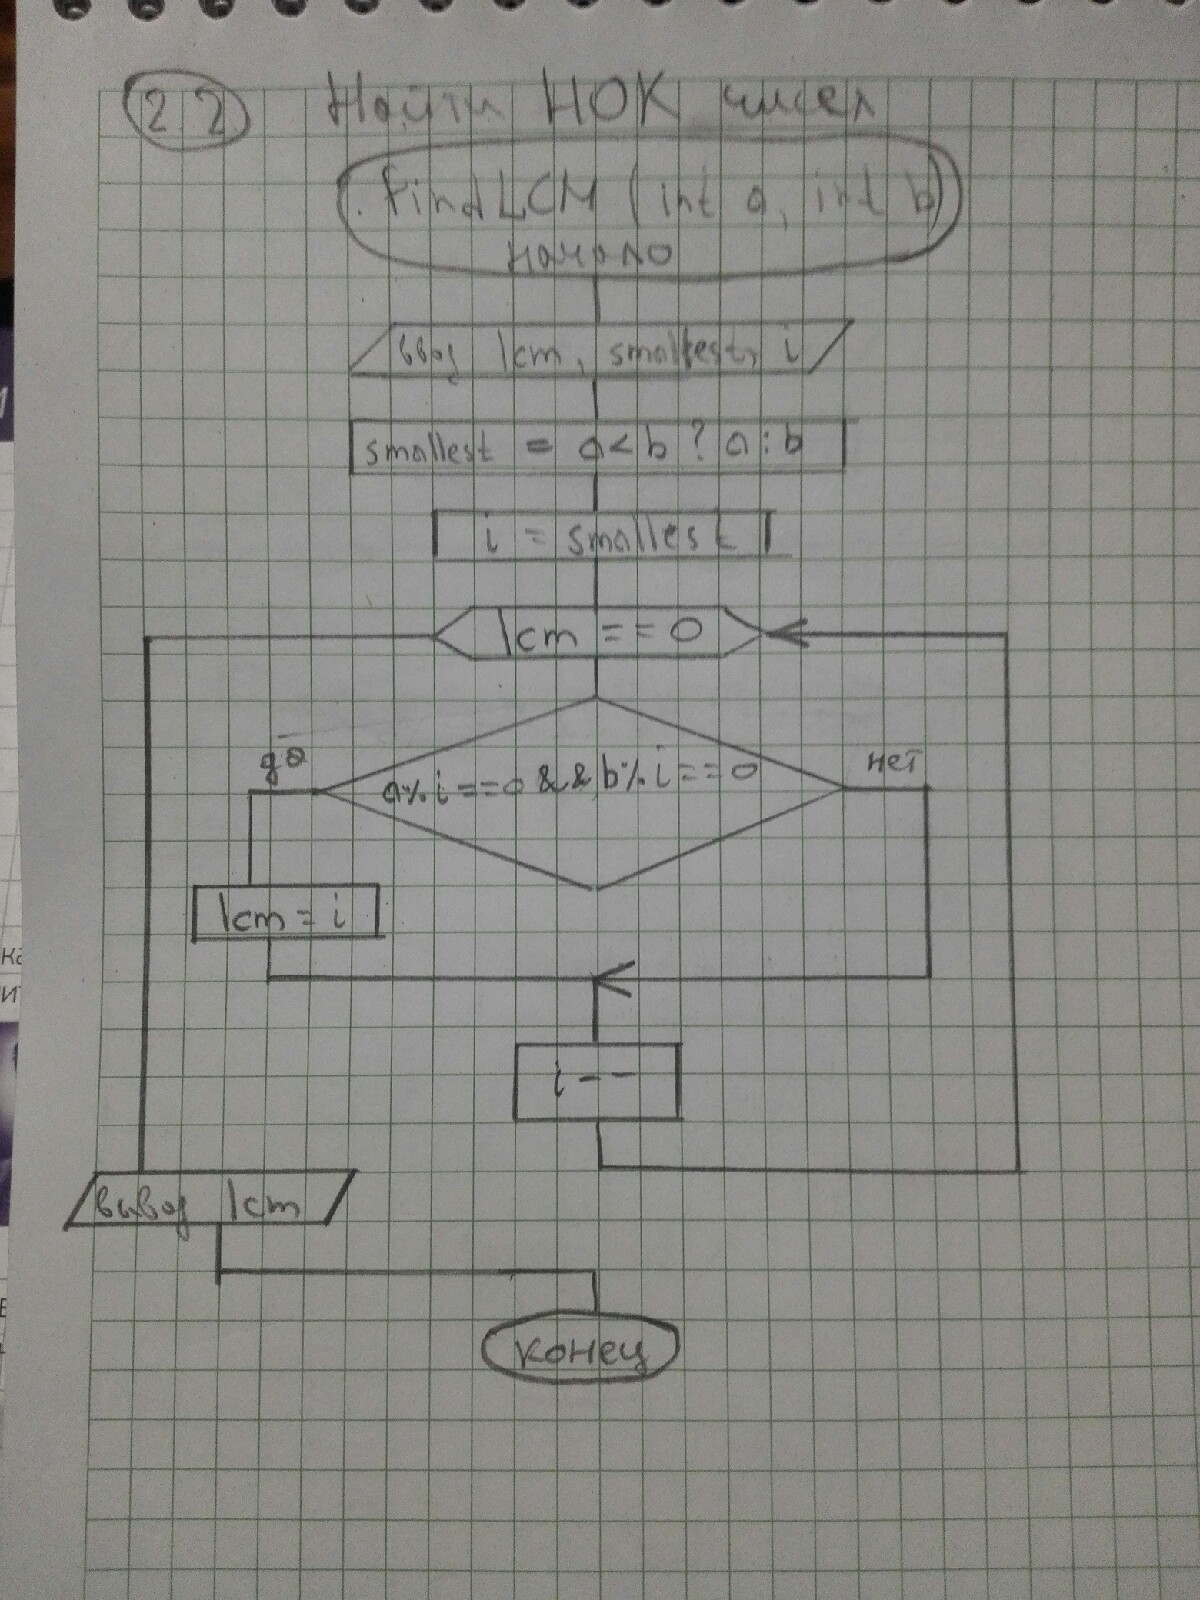 22 Найти НОК чисел
findLCM (int a, int b)
начало
ввод lcm, smallest, i
smallest = a<b ? a : b
i = smallest
lcm == 0
да
нет
a%i==0 && b%i==0
lcm = i
i--
вывод lcm
конец